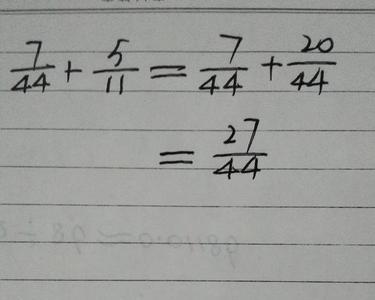 7/44 + 5/11 = 7/44 + 20/44
= 27/44